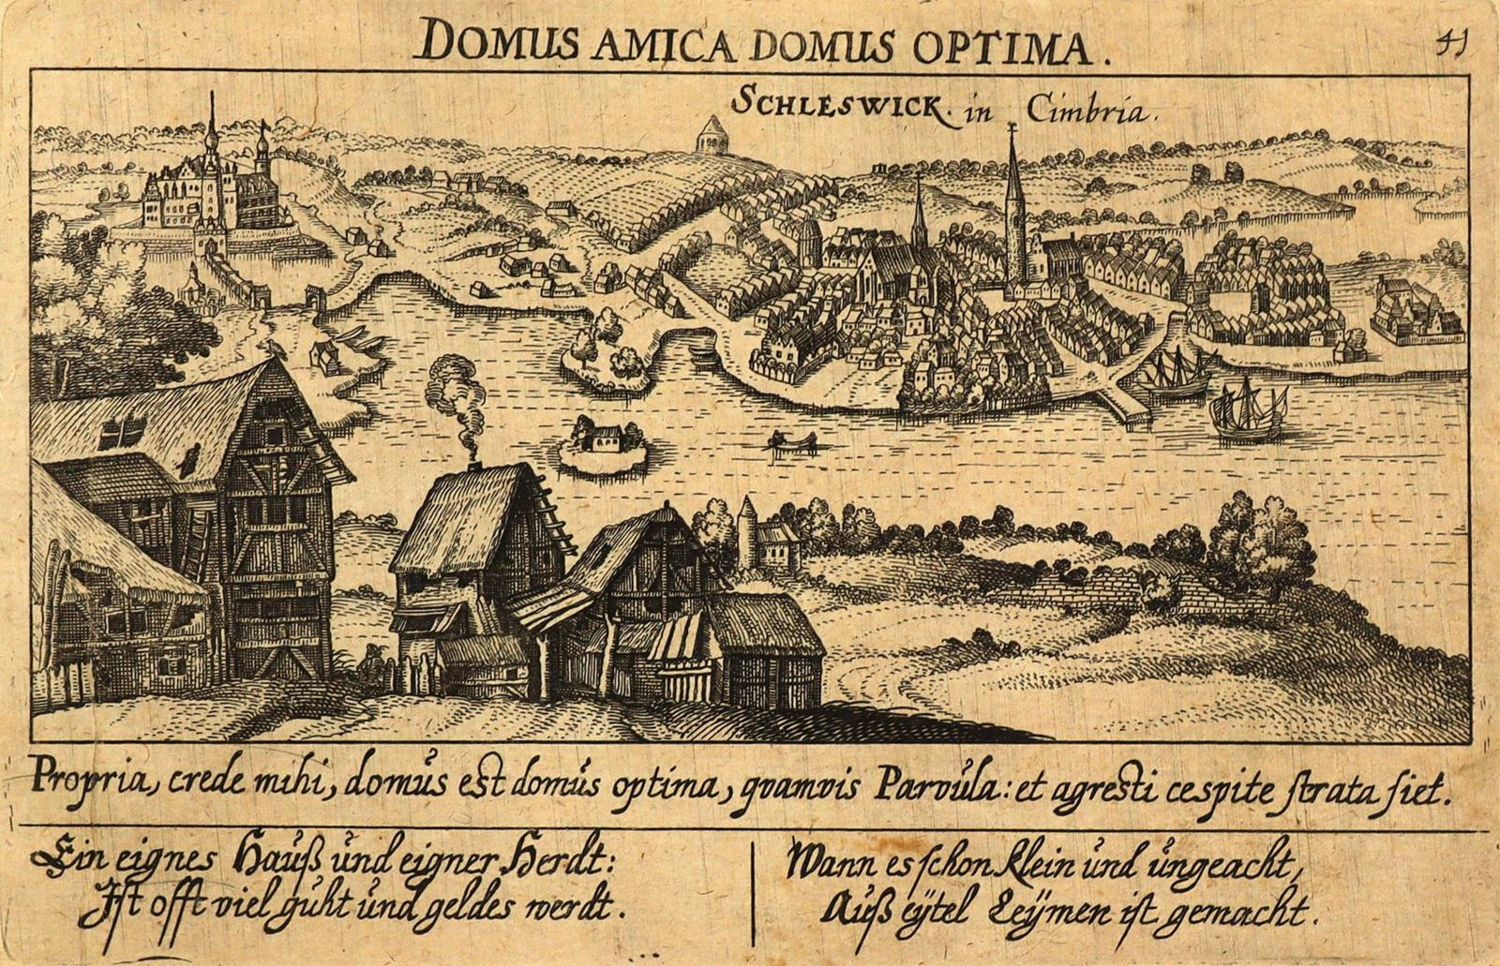 DOMUS AMICA DOMUS OPTIMA.
41
SCHLESWICK. in Cimbria.
Propria, crede mihi, domus est domus optima, qvamvis Parvula: et agresti cespite strata siet.
Ein eignes Hauß und eigner Herdt:
Ist offt viel guht und geldes werdt.
Wann es schon klein und ungeacht,
Auß eÿtel Leÿmen ist gemacht.